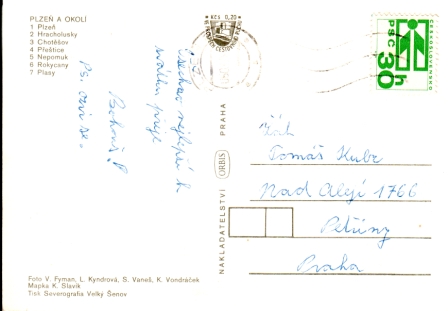 PLZEŇ A OKOLÍ
1 Plzeň
2 Hracholusky
3 Chotěšov
4 Přeštice
5 Nepomuk
6 Rokycany
7 Plasy
Kčs 0,20
ČESKOSLOVENSKO
PSČ
30h
všechno nejlepší k
přeje
Bohouš
Ps.
NAKLADATELSTVÍ ORBIS PRAHA
Žák
Tomáš Kubr
Nad Alejí 1766
Petřiny
Praha
Foto V. Fyman, L. Kyndrová, S. Vaneš, K. Vondráček
Mapka K. Slavík
Tisk Severografia Velký Šenov